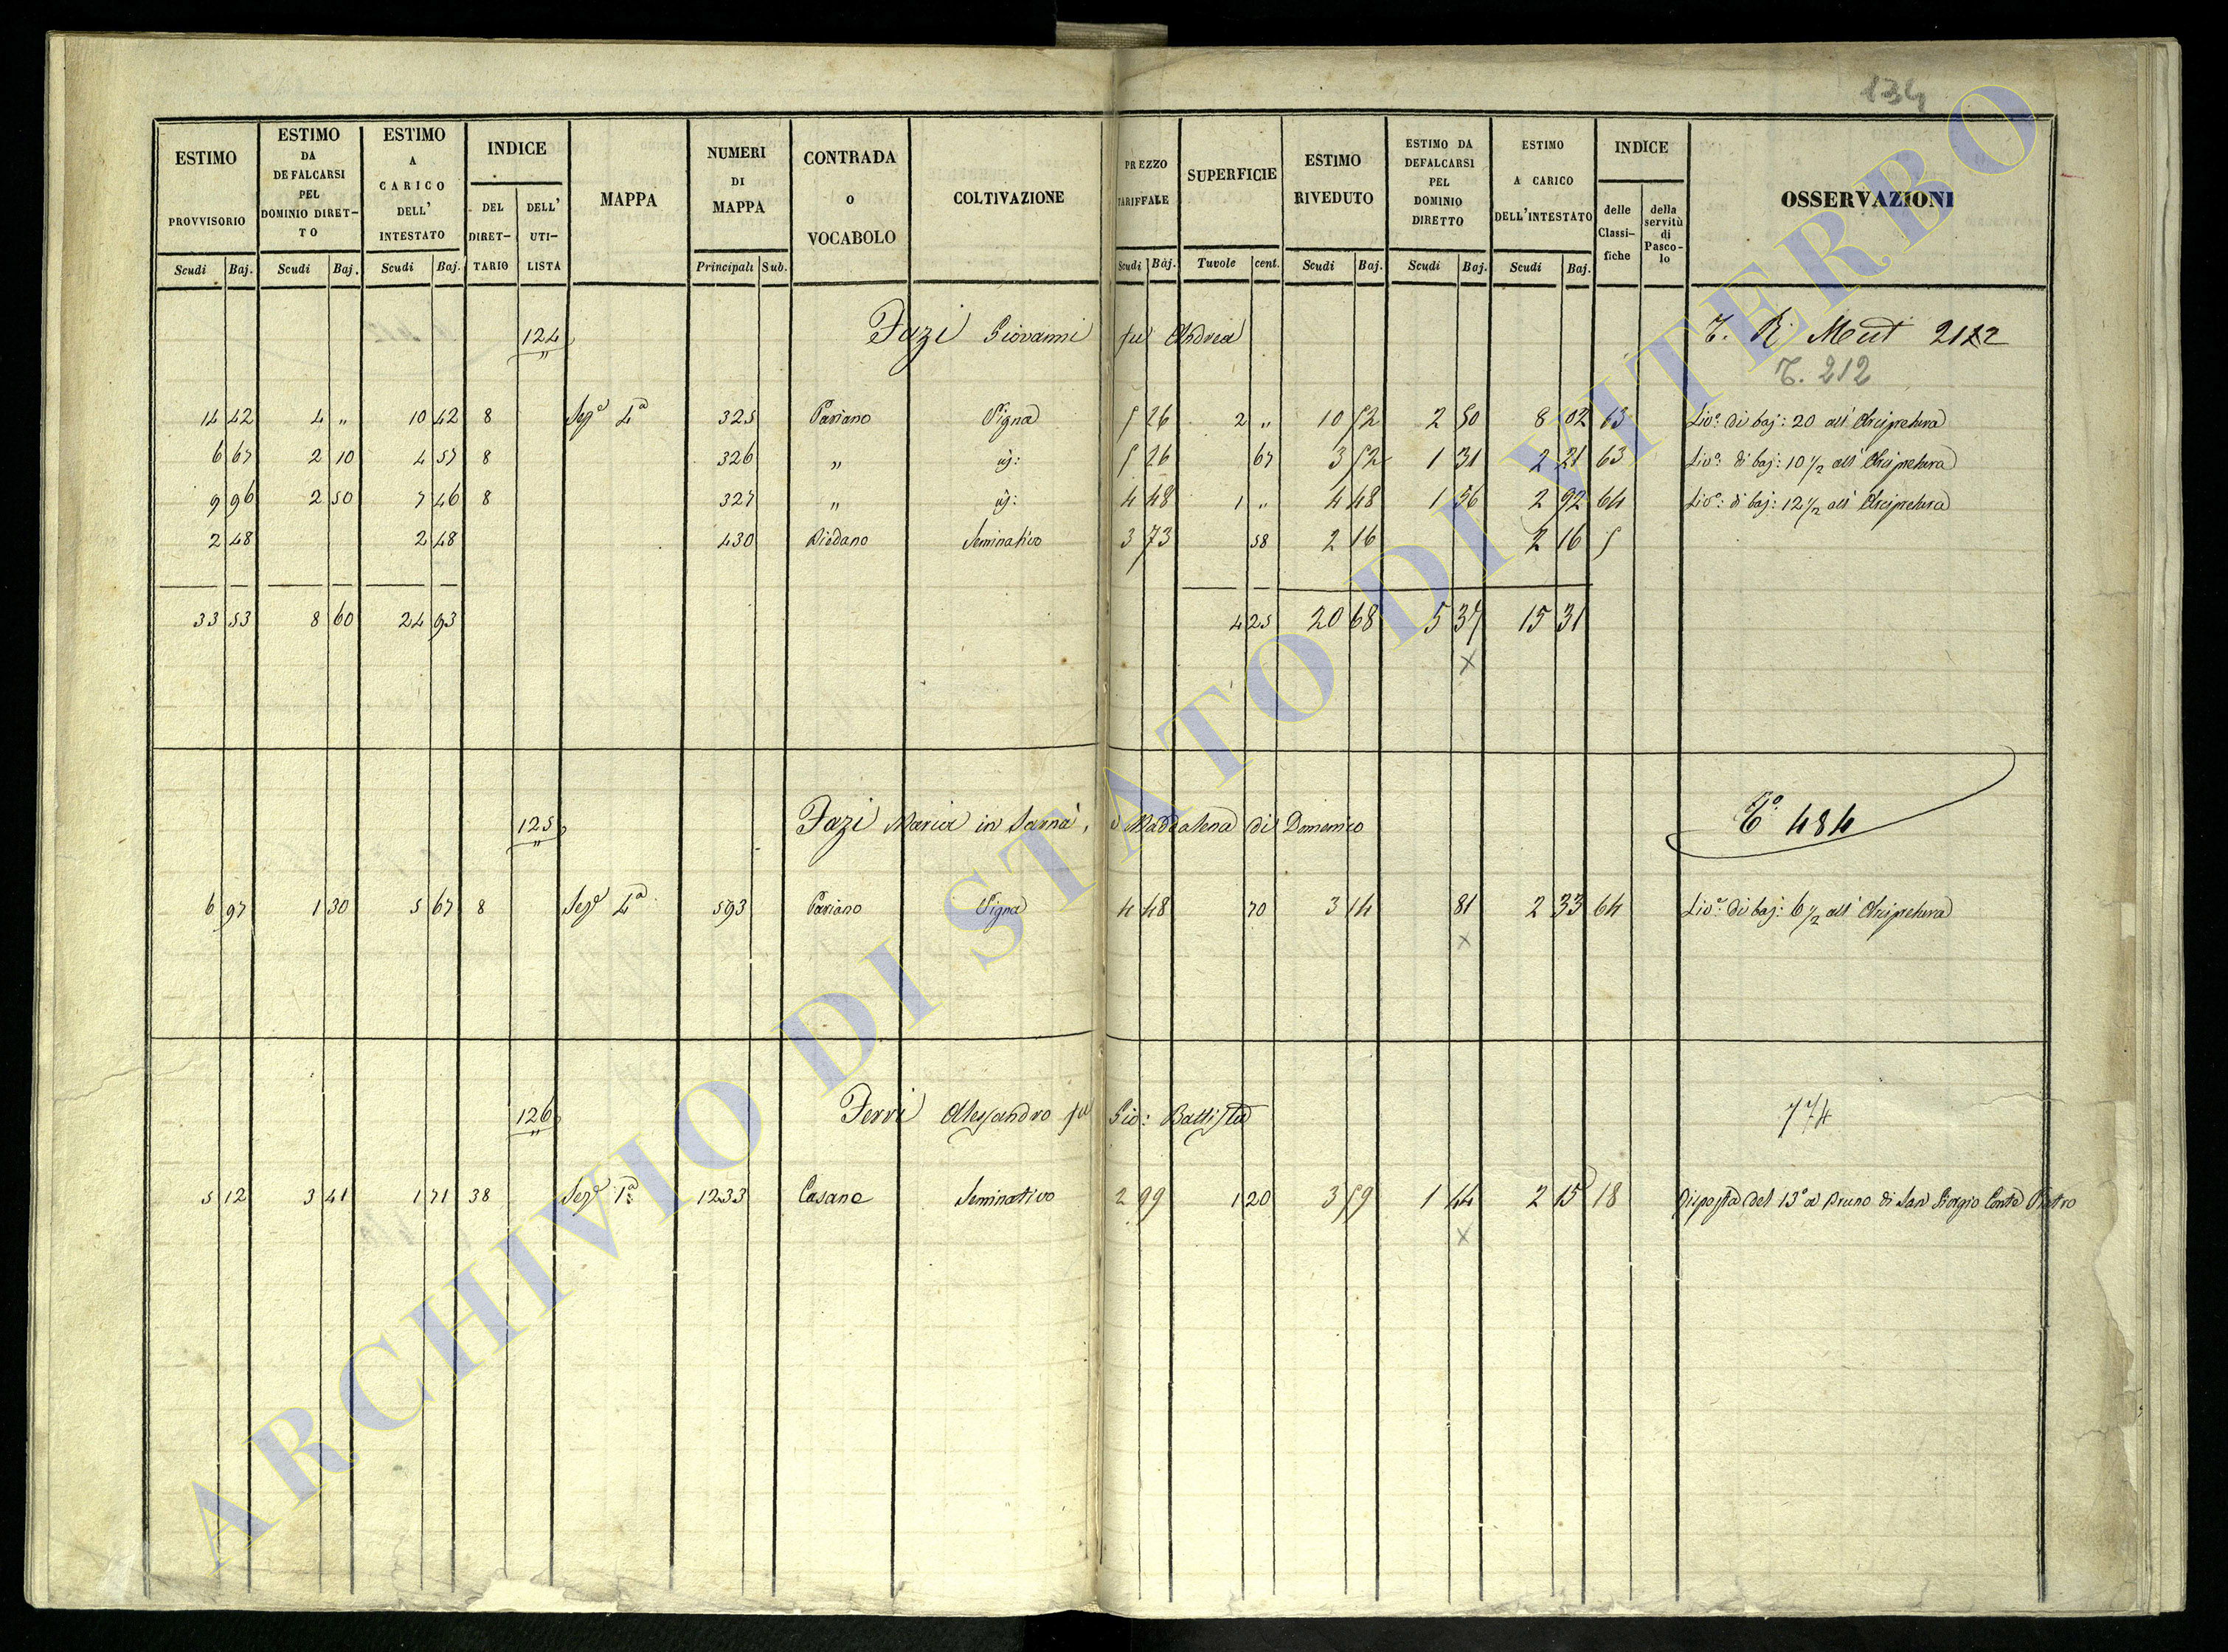 134
ESTIMO PROVVISORIO Scudi Baj.
ESTIMO DA DEFALCARSI PEL DOMINIO DIRET- TO Scudi Baj.
ESTIMO A CARICO DELL' INTESTATO Scudi Baj.
INDICE DEL DIRET- TARIO DELL' UTI- LISTA
MAPPA
NUMERI DI MAPPA Principali Sub.
CONTRADA O VOCABOLO
COLTIVAZIONE
PREZZO TARIFFALE Scudi Baj.
SUPERFICIE Tavole cent.
ESTIMO RIVEDUTO Scudi Baj.
ESTIMO DA DEFALCARSI PEL DOMINIO DIRETTO Scudi Baj.
ESTIMO A CARICO DELL'INTESTATO Scudi Baj.
INDICE delle Classi- fiche della servitù di Pasco- lo
OSSERVAZIONI
124 Fazi Giovanni fu Andrea T. R. 2122
T. 212
14 42 4 " 10 42 8 Sez.e 4a 325 Pariano Vigna 5 26 2 " 10 52 2 50 8 02 63 Liv.o di baj: 20 all' Arcipretura
6 67 2 10 4 57 8 326 " id: 5 26 67 3 52 1 31 2 21 63 Liv.o: di baj: 10 1/2 all' Arcipretura
9 96 2 50 7 46 8 327 " id: 4 48 1 " 4 48 1 56 2 92 64 Liv.o: di baj: 12 1/2 all' Arcipretura
2 48 2 48 430 Seminativo 3 73 58 2 16 2 16 5
33 53 8 60 24 93 4 25 20 68 5 37 15 31
x
125 Fazi Maria in Sarna, e Maddalena di Domenico T.o 484
6 97 1 30 5 67 8 Sez.e 4a 593 Pariano Vigna 4 48 70 3 14 81 2 33 64 Liv.o: di baj: 6 1/2 all' Arcipretura
x
126 Ferri Alessandro fu Gio: Battista 774
5 12 3 41 1 71 38 Sez.e 1a 1233 Casane Seminativo 2 99 1 20 3 59 1 44 2 15 18 Risposta del 13o a Bruno di San Giorgio Conte Pietro
x
ARCHIVIO DI STATO DI VITERBO